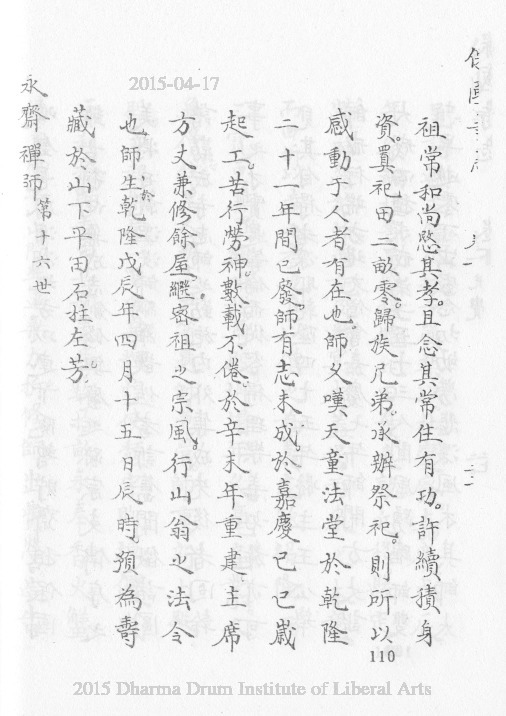 祖常和尚愍其孝。且念其常住有功。許續積身
資。買祀田二畝零。歸族兄弟。承辦祭祀。則所以
感動于人者有在也。師又嘆天童法堂於乾隆
二十一年間已發。師有志未成於嘉慶己巳嵗
起工。苦行勞神。數載不倦。於辛未年重建。主席
方丈兼修餘屋。繼密祖之宗風。行山翁之法令
也師生於乾隆戊辰年四月十五日辰時。預為壽
藏於山下平田石拄左旁。
永齋禪師 第十六世
110
2015-04-17
2015 Dharma Drum Institute of Liberal Arts